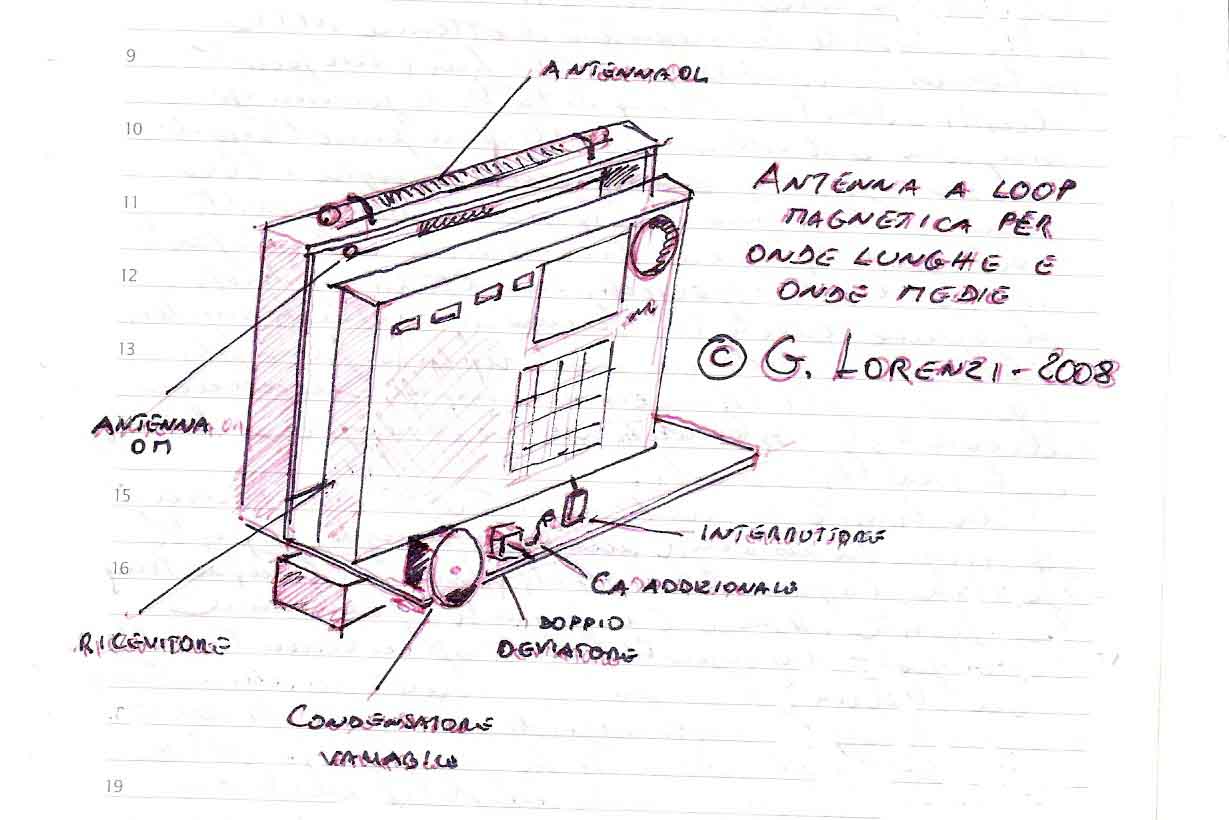 9
ANTENNA OL
10
ANTENNA A LOOP
MAGNETICA PER
11
ONDE LUNGHE E
12
ONDE MEDIE
13
© G. LORENZI - 2008
ANTENNA
OM
15
INTERRUTTORE
16
CA ADDIZIONALE
DOPPIO
RICEVITORE
DEVIATORE
CONDENSATORE
VARIABILE
19